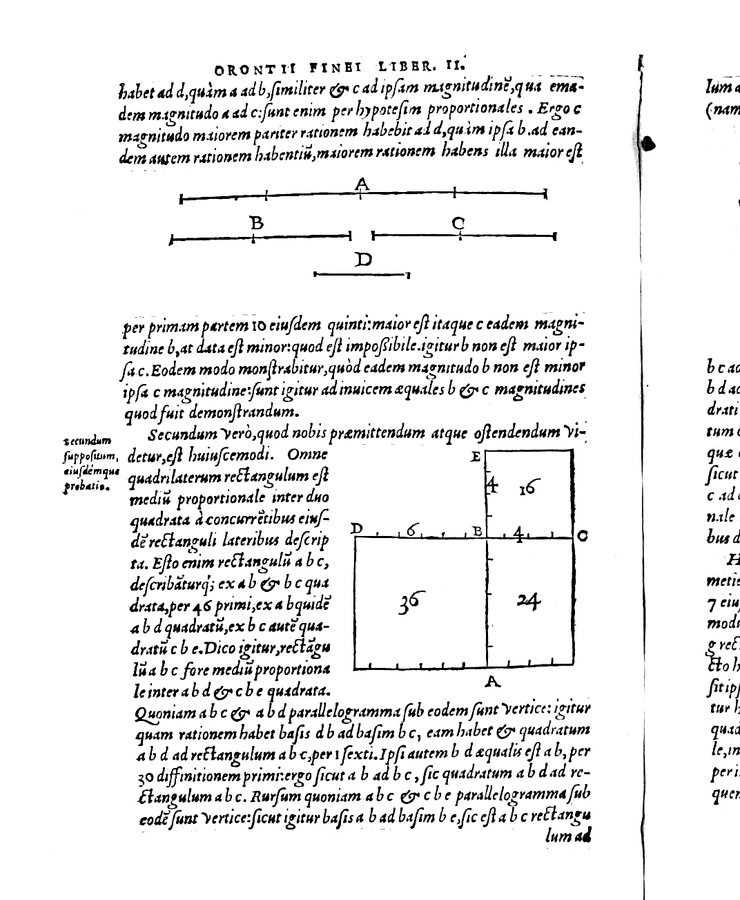 ORONTII FINEI LIBER. II.
habet ad d, quàm a ad b, ſimiliter & c ad ipſam magnitudinē, qua ema-
dem magnitudo a ad c: ſunt enim per hypoteſim proportionales. Ergo c
magnitudo maiorem pariter rationem habebit ad d, quàm ipſa b. ad ean-
dem autem rationem habentiū, maiorem rationem habens illa maior eſt
A
B C
D
per primam partem 10 eiuſdem quinti: maior eſt itaque c eadem magni-
tudine b, at data eſt minor: quod eſt impoßibile. igitur b non eſt maior ip-
ſa c. Eodem modo monſtrabitur, quòd eadem magnitudo b non eſt minor
ipſa c magnitudine: ſunt igitur ad inuicem æquales b & c magnitudines
quod fuit demonſtrandum.
Secundum verò, quod nobis præmittendum atque oſtendendum vi-
secundum
ſuppoſitum,
eiuſdémque
probatio.
detur, eſt huiuſcemodi. Omne
quadrilaterum rectangulum eſt
mediū proportionale inter duo
quadrata à concurrētibus eiuſ-
dē rectanguli lateribus deſcrip
ta. Eſto enim rectangulū a b c,
deſcribāturq́; ex a b & b c qua
drata, per 46 primi, ex a b quidē
a b d quadratū, ex b c autē qua-
dratū c b e. Dico igitur, rectāgu
lū a b c fore mediū proportiona
le inter a b d & c b e quadrata.
E
4 16
D 6 B 4 C
36 24
A
Quoniam a b c & a b d parallelogramma ſub eodem ſunt vertice: igitur
quam rationem habet baſis d b ad baſim b c, eam habet & quadratum
a b d ad rectangulum a b c, per 1 ſexti. Ipſi autem b d æqualis eſt a b, per
30 diffinitionem primi: ergo ſicut a b ad b c, ſic quadratum a b d ad re-
ctangulum a b c. Rurſum quoniam a b c & c b e parallelogramma ſub
eodē ſunt vertice: ſicut igitur baſis a b ad baſim b e, ſic eſt a b c rectangu
lum ad
lum a
(nam
b c ad
b d ac
drati
tum c
quæ
ſicut
c ad
nale
bus d
H
metie
7 eiu
modi
g rect
cto h
ſit ipſ
tur h
quad
le, in
per i
quen